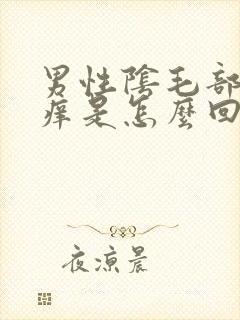 男性陰毛部
痒是怎麼回
夜涼晨